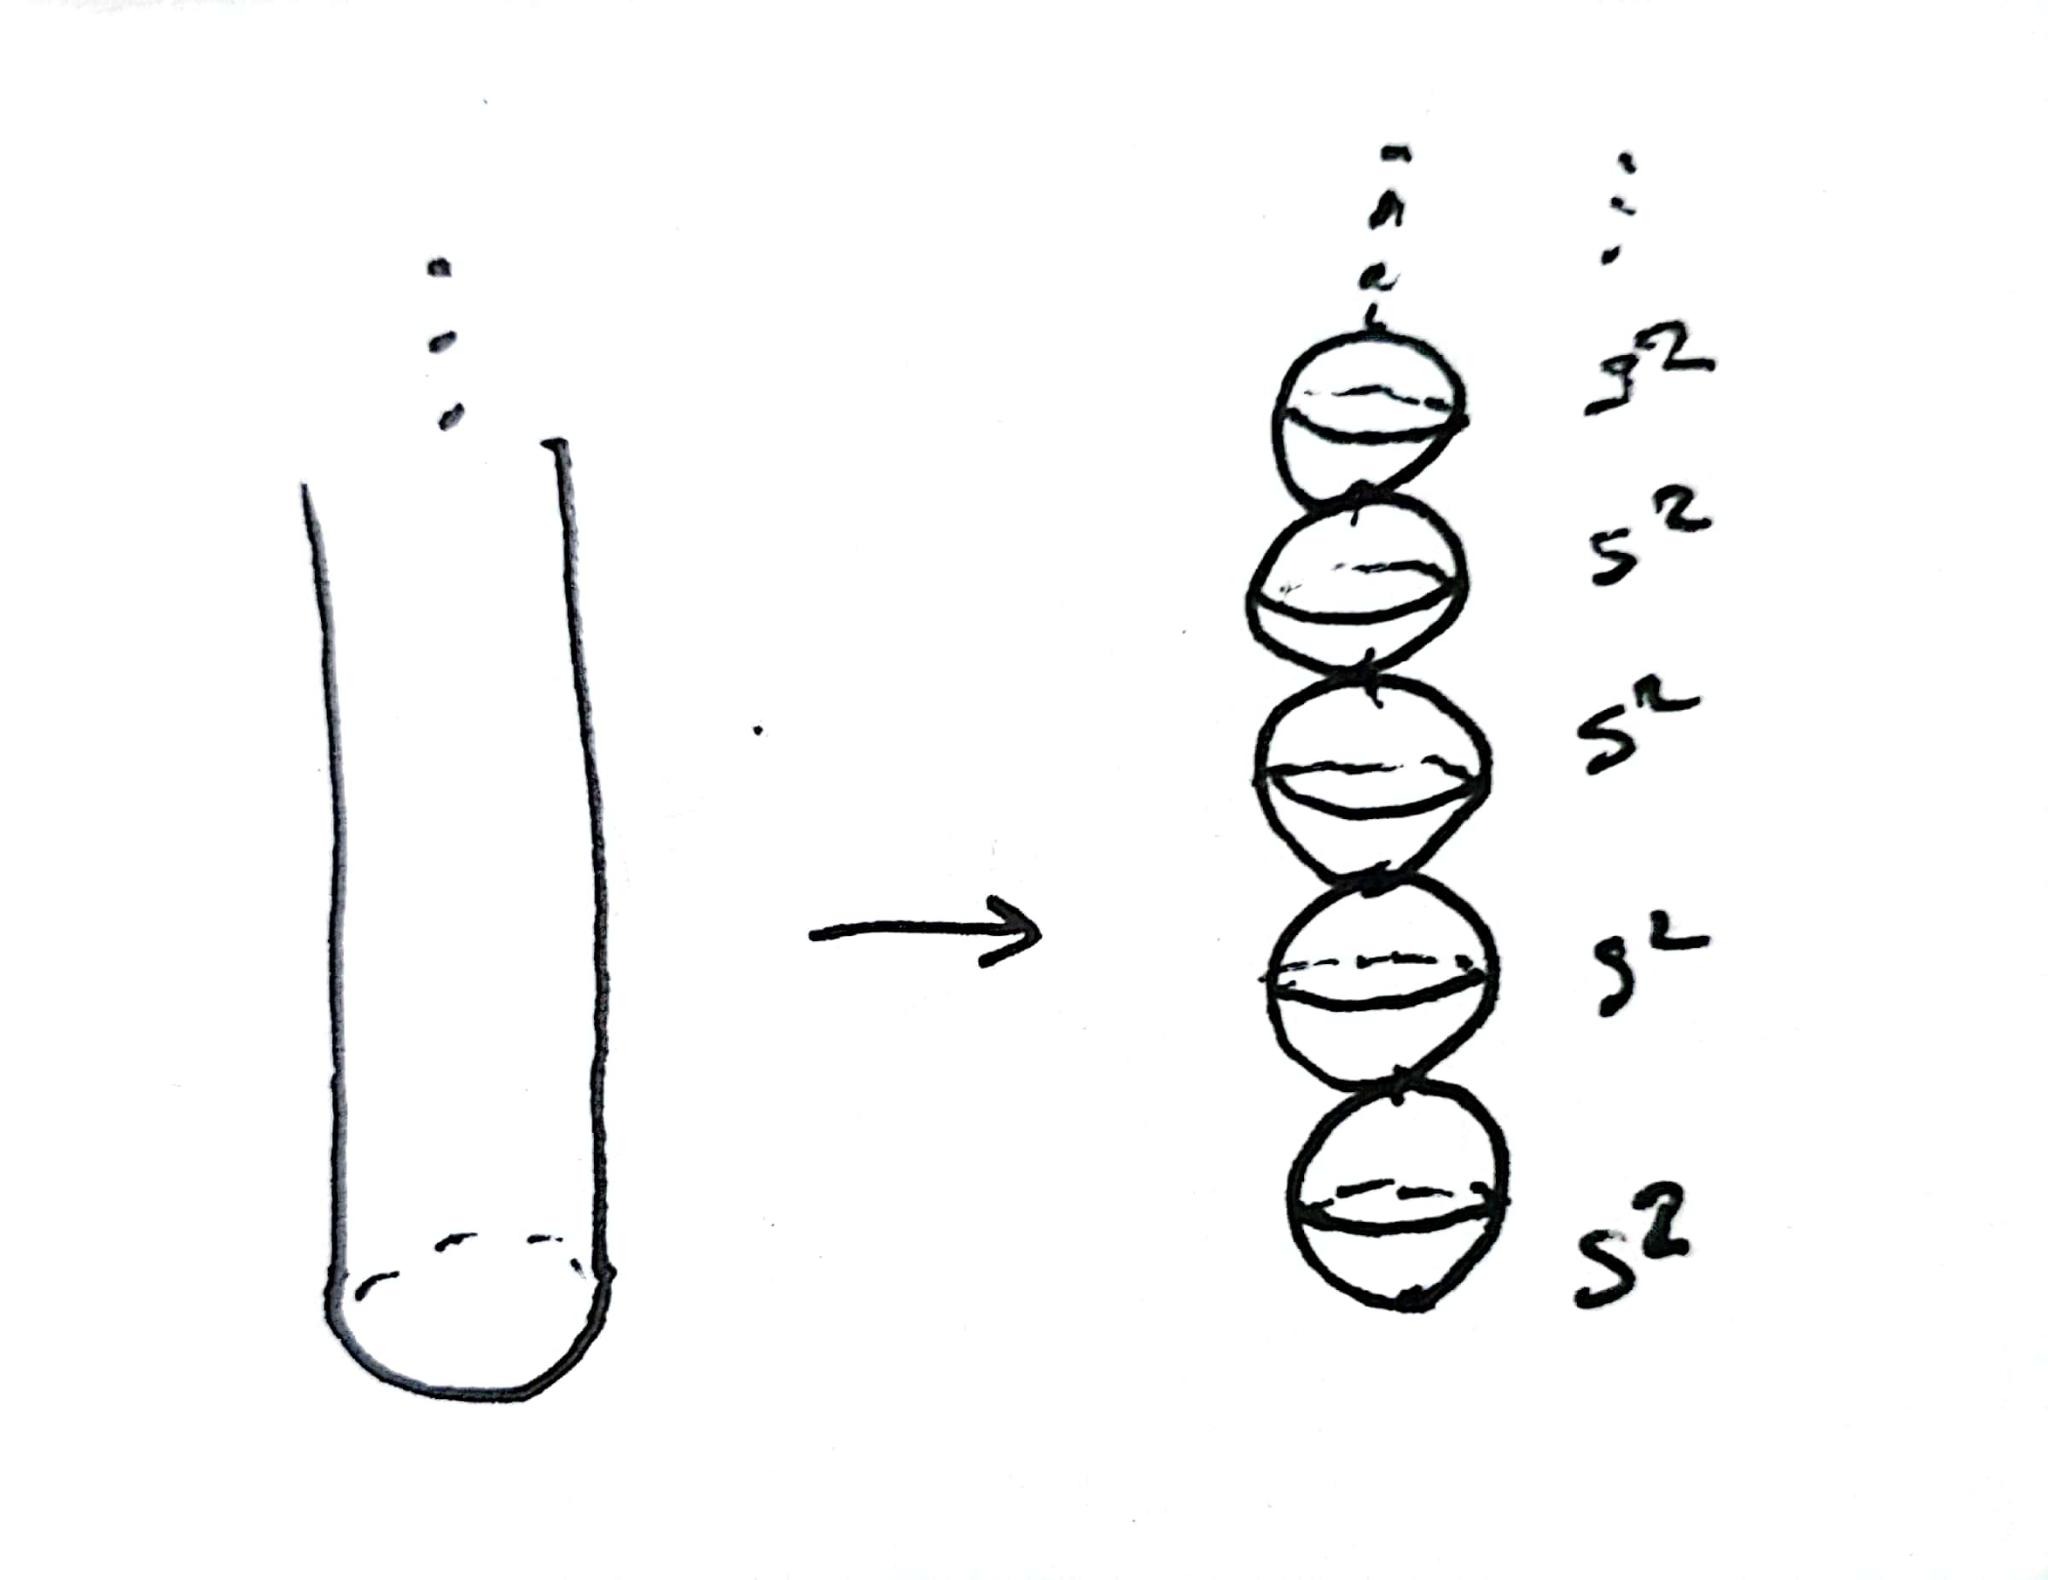 S²
S²
S²
S²
S²